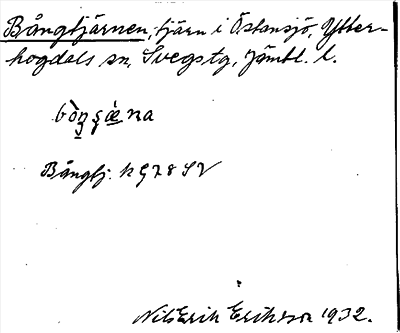 Bångtjärnen, tjärn i Östansjö, Ytter-
hogdals sn, Svegs tg, Jämtl. l.
Bångtj.
Nils Erik Eriksson 1932.